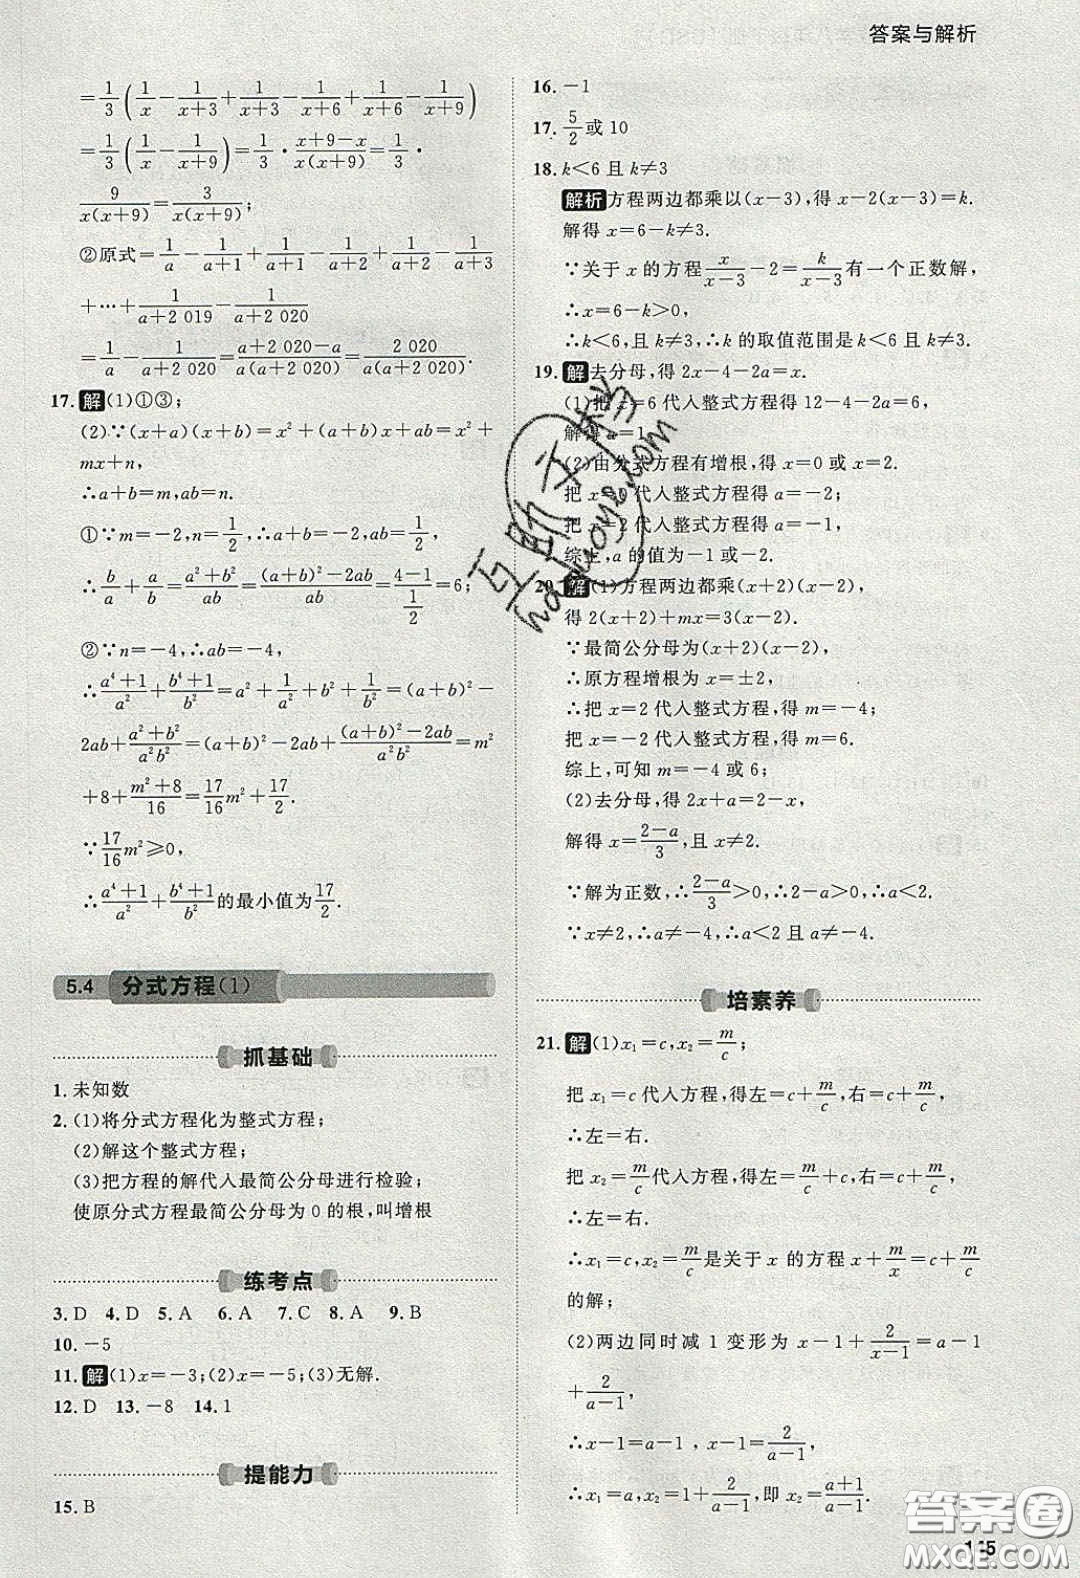 答案与解析
=1/3(1/x-1/(x+3)+1/(x+3)-1/(x+6)+1/(x+6)-1/(x+9))
=1/3(1/x-1/(x+9))=1/3·(x+9-x)/(x(x+9))=1/3·
9/(x(x+9))=3/(x(x+9));
②原式=1/a-1/(a+1)+1/(a+1)-1/(a+2)+1/(a+2)-1/(a+3)
+…+1/(a+2 019)-1/(a+2 020)
=1/a-1/(a+2 020)=(a+2 020-a)/(a(a+2 020))=2 020/(a(a+2 020)).
17.解(1)①③;
(2)∵(x+a)(x+b)=x²+(a+b)x+ab=x²+
mx+n,
∴a+b=m,ab=n.
①∵m=-2,n=1/2,∴a+b=-2,ab=1/2,
∴b/a+a/b=(a²+b²)/ab=((a+b)²-2ab)/ab=(4-1)/(1/2)=6;
②∵n=-4,∴ab=-4,
∴(a⁴+1)/a²+(b⁴+1)/b²=a²+1/a²+b²+1/b²=(a+b)²-
2ab+(a²+b²)/(a²b²)=(a+b)²-2ab+((a+b)²-2ab)/(a²b²)=m²
+8+(m²+8)/16=17/16m²+17/2.
∵17/16m²⩾0,
∴(a⁴+1)/a²+(b⁴+1)/b²的最小值为17/2.
5.4 分式方程(1)
抓基础
1.未知数
2.(1)将分式方程化为整式方程;
(2)解这个整式方程;
(3)把方程的解代入最简公分母进行检验;
使原分式方程最简公分母为0的根,叫增根
练考点
3.D 4.D 5.A 6.A 7.C 8.A 9.B
10.-5
11.解(1)x=-3;(2)x=-5;(3)无解.
12.D 13.-8 14.1
提能力
15.B
16.-1
17.5/2或10
18.k<6且k≠3
解析方程两边都乘以(x-3),得x-2(x-3)=k.
解得x=6-k≠3.
∵关于x的方程x/(x-3)-2=k/(x-3)有一个正数解,
∴x=6-k>0,
∴k<6,且k≠3,∴k的取值范围是k<6且k≠3.
19.解去分母,得2x-4-2a=x.
(1)把x=6代入整式方程得12-4-2a=6,
解得a=1.
(2)由分式方程有增根,得x=0或x=2.
把x=0代入整式方程得a=-2;
把x=2代入整式方程得a=-1,
综上,a的值为-1或-2.
20.解(1)方程两边都乘(x+2)(x-2),
得2(x+2)+mx=3(x-2).
∵最简公分母为(x+2)(x-2),
∴原方程增根为x=±2,
∴把x=2代入整式方程,得m=-4;
把x=-2代入整式方程,得m=6.
综上,可知m=-4或6;
(2)去分母,得2x+a=2-x,
解得x=(2-a)/3,且x≠2.
∵解为正数,∴(2-a)/3>0,∴2-a>0,∴a<2.
∵x≠2,∴a≠-4,∴a<2且a≠-4.
培素养
21.解(1)x₁=c,x₂=m/c;
把x₁=c代入方程,得左=c+m/c,右=c+m/c,
∴左=右.
把x₂=m/c代入方程,得左=m/c+c,右=c+m/c,
∴左=右.
∴x₁=c,x₂=m/c是关于x的方程x+m/x=c+m/c
的解;
(2)两边同时减1变形为x-1+2/(x-1)=a-1
+2/(a-1),
∴x-1=a-1,x-1=2/(a-1),
∴x₁=a,x₂=1+2/(a-1),即x₂=(a+1)/(a-1).
答案圈
MXQE.COM
互助手榜